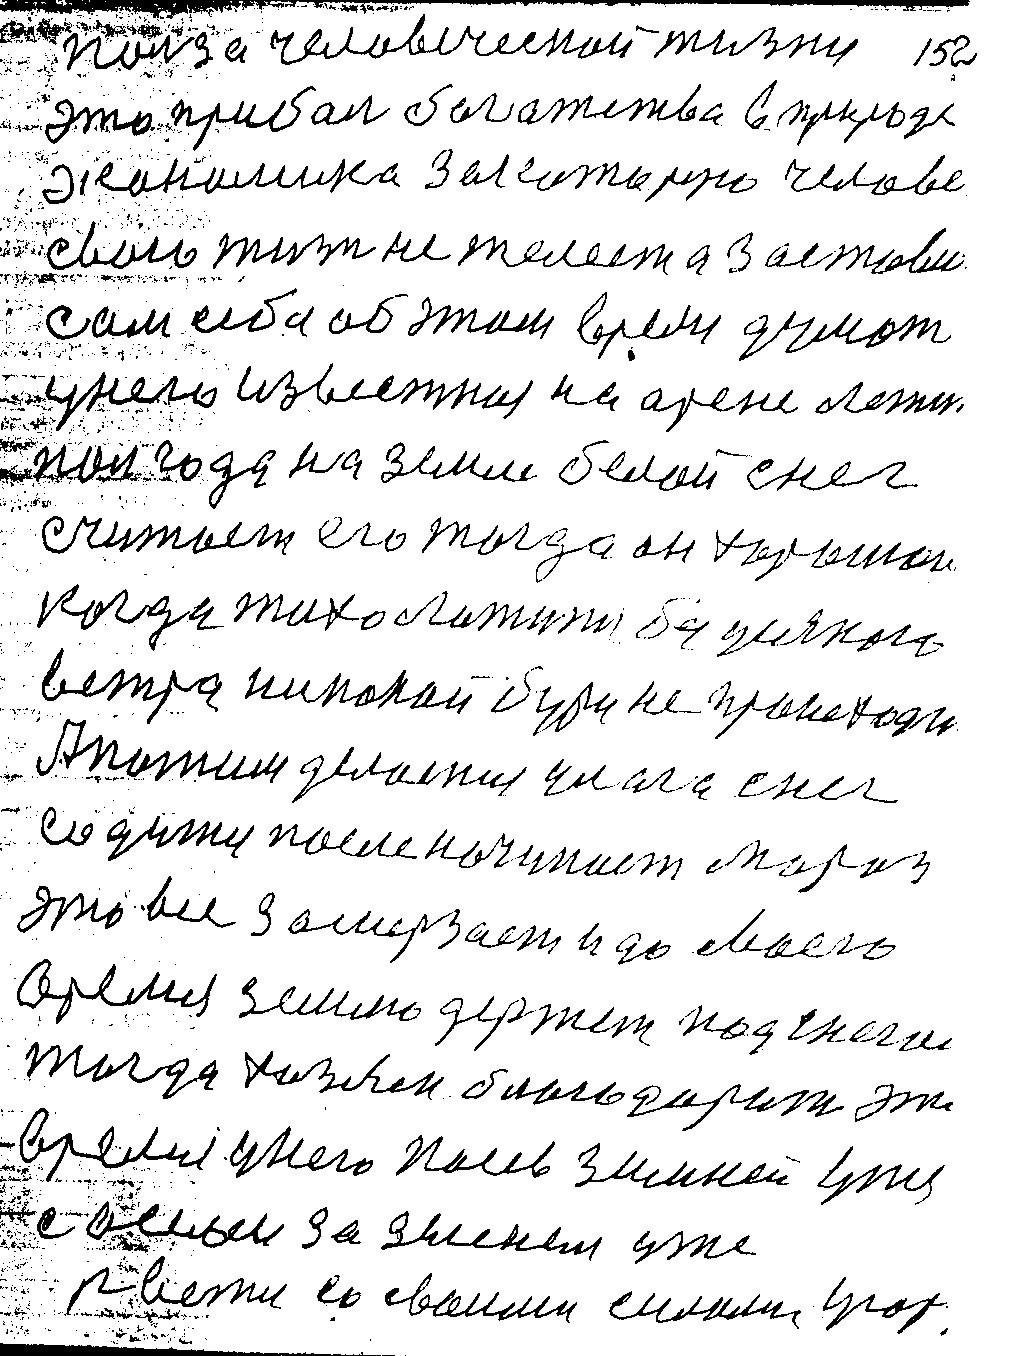 польза человеческой жизни 152
это прибал богатства в природе
экономика за которую челове
свою жизн не желеет а застови
сам себя об этом время думат
у него известная на арене
пол года на земле белой снег
считает его тогда он хорошои
когда тихо
ветра никокой бури не происходи
А потим делается улага снег
после начинает мороз
это все замерзает и до своего
время землю держет под снегом
тогда хозяен благодарит эти
время у него посев зимней уже
с осени за зеленел уже
рвети со своими силами